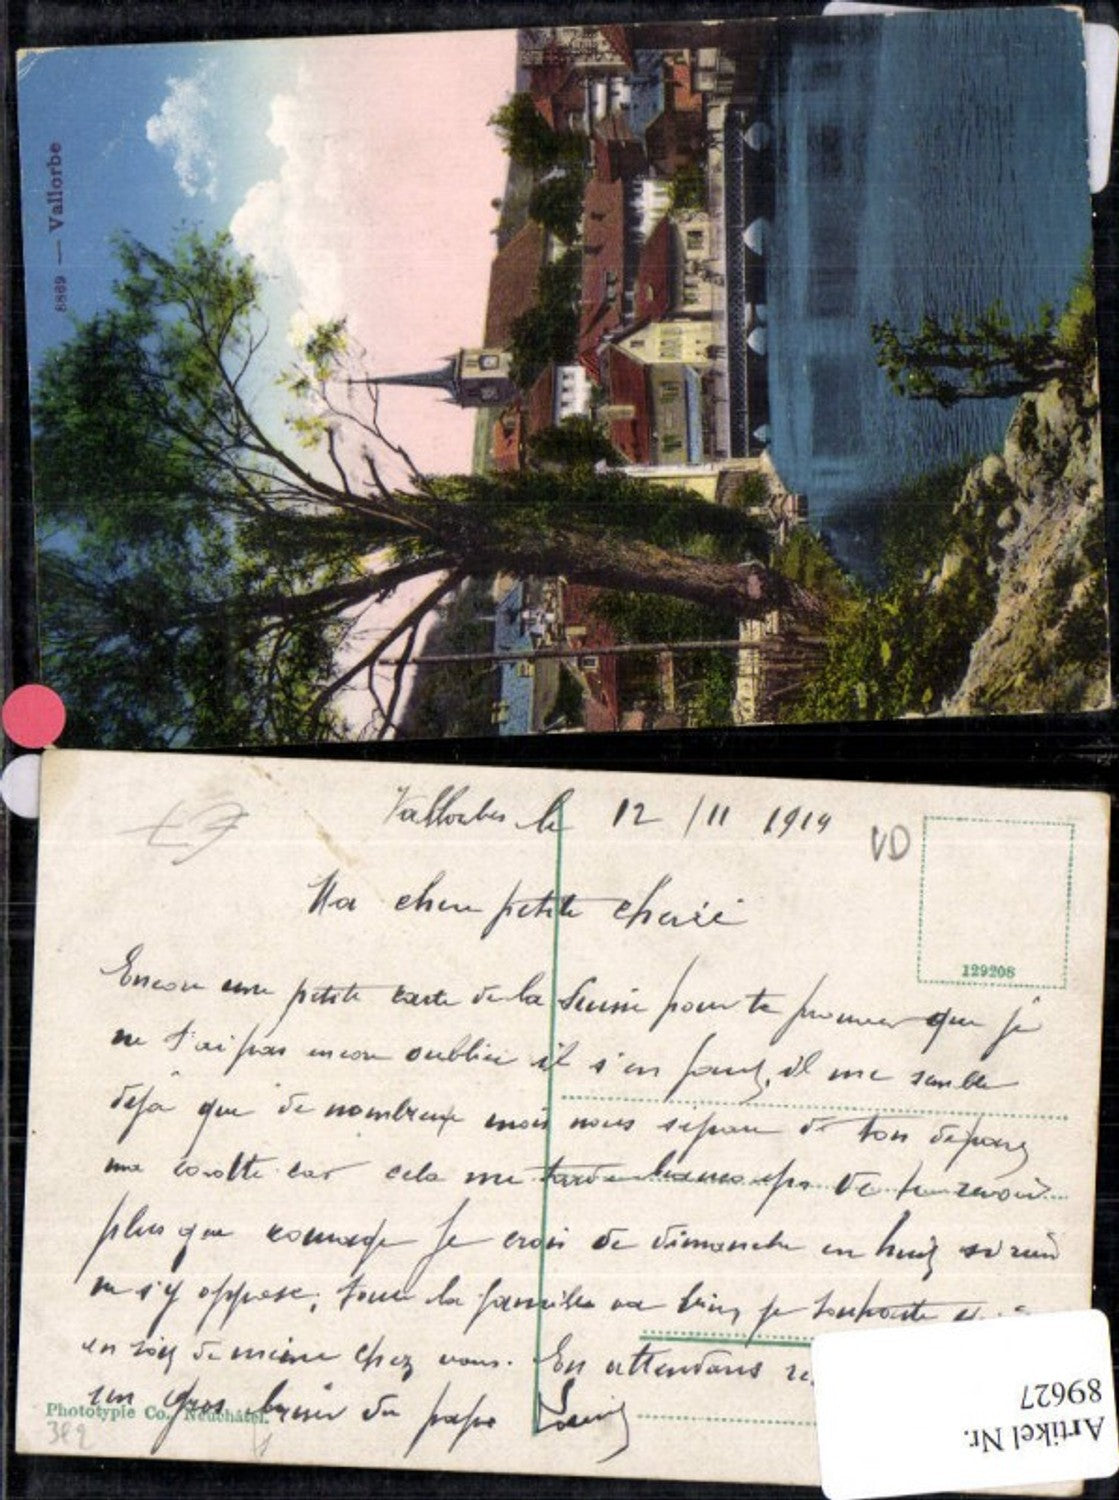 8869 — Vallorbe
Vallorbes le 12/11 1919
VD
129208
Ma chere petite cherie
Encore une petite carte de la Suisse pour te prouver que je
ne t'ai pas encore oublier il s'en faut, il me semble
déjà que de nombreux mois nous separe de ton depart
ma cocotte car cela me tarde beaucoup de te revoir
plus que courage Je crois de dimanche en huit si rien
ne s'y oppose, toute la famille va bien je souhaite
en soit de meme chez vous. En attendant
un gros baiser du papa Louis
Phototypie Co., Neuchâtel.
Artikel Nr.
89627